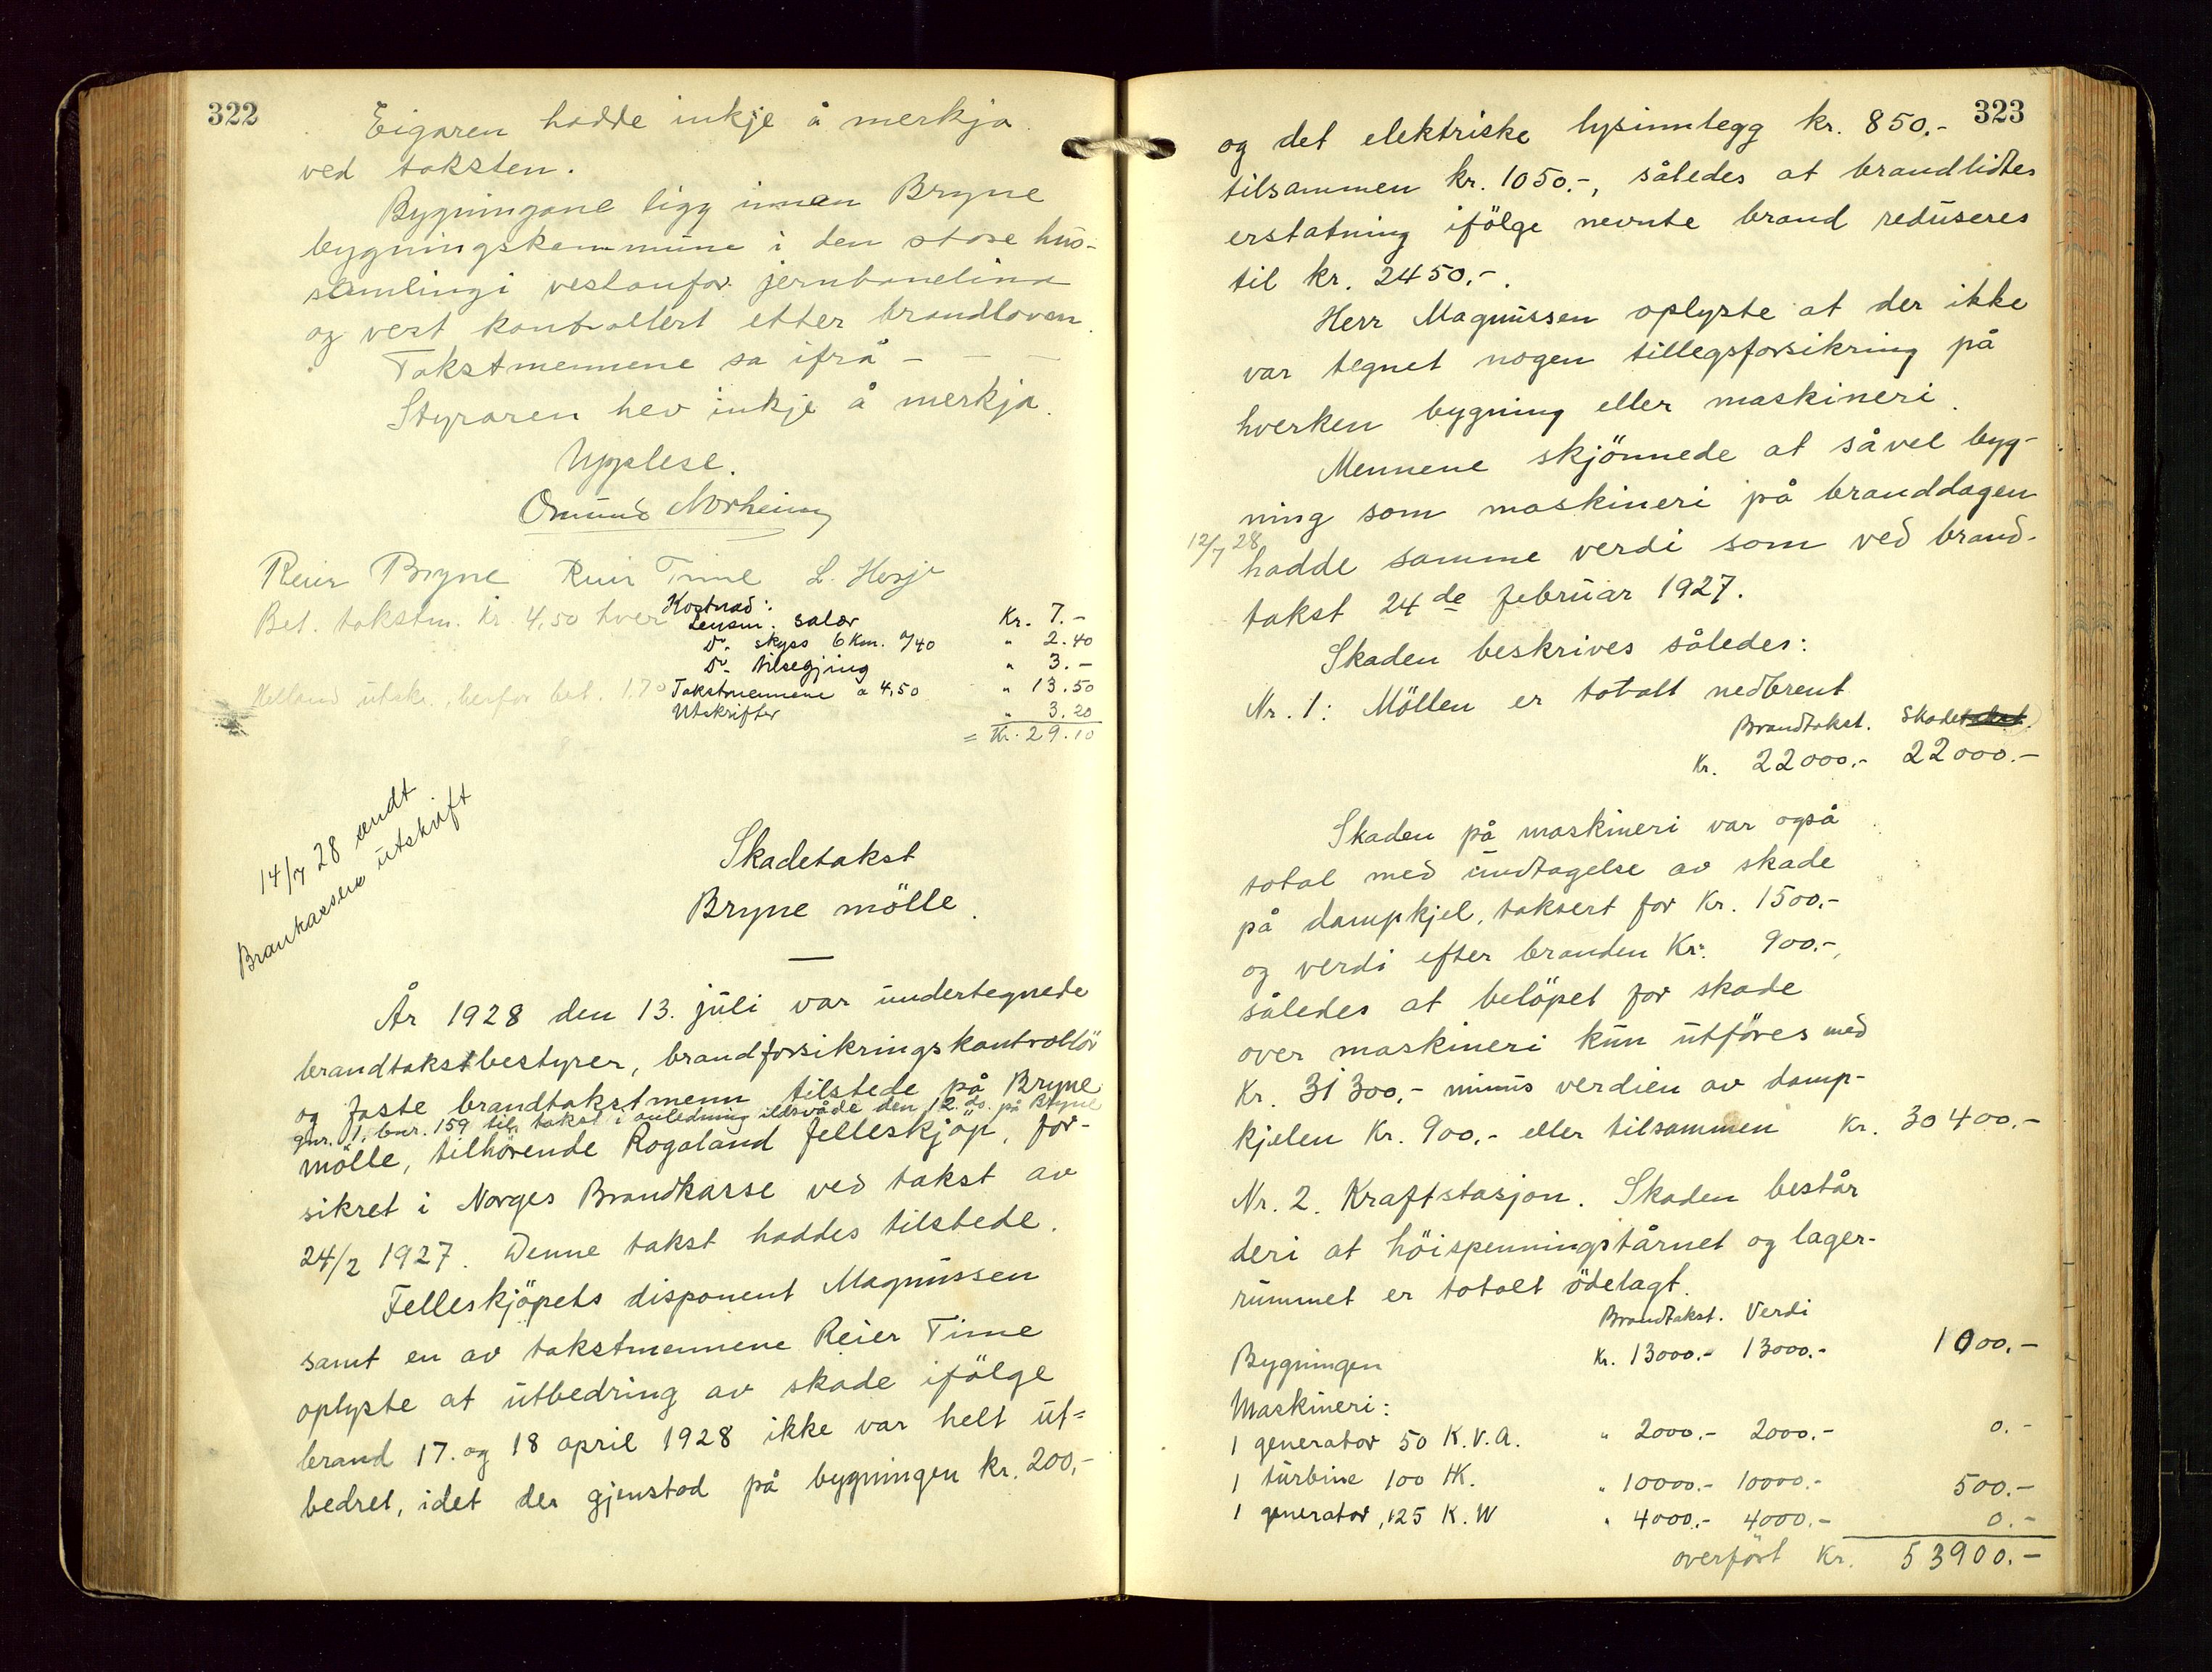 322
Eigaren hadde inkje å merkja
ved taksten.
Bygningane ligg innan Bryne
bygningskommune i den store hus-
samlingi vestanfor jernbanelina
og vert kontrollert etter brandloven.
Takstmennene sa ifrå – – –
Styraren hev inkje å merkja.
Upplese.
Omund Norheim
Reier Bryne Reier Time L. Hesje
Bet. takstm. kr. 4,50 hver
Kostnad:
Lensm. salær Kr. 7.-
Do. skyss 6 Km. a/40 " 2.40
Do. tilsegjing " 3.-
Takstmennene a 4,50 " 13.50
Utskrifter " 3.20
= Kr. 29.10
Helland utskr., herfor bet. 1.70
14/7 28 sendt
Brankassen utskrift
Skadetakst
Bryne mölle.
År 1928 den 13. juli var undertegnede
brandtakstbestyrer, brandforsikringskontrollör
og faste brandtakstmenn tilstede på Bryne
gnr. 1, bnr. 159 til takst i anledning ildsvåde den 12. ds. på Bryne
mölle, tilhörende Rogaland Felleskjöp, for-
sikret i Norges Brandkasse ved takst av
24/2 1927. Denne takst haddes tilstede.
Felleskjöpets disponent Magnussen
samt en av takstmennene Reier Time
oplyste at utbedring av skade ifölge
brand 17. og 18 april 1928 ikke var helt ut-
bedret, idet der gjenstod på bygningen kr. 200,-
323
og det elektriske lysinnlegg kr. 850.-
tilsammen kr. 1050.-, således at brandlidtes
erstatning ifölge nevnte brand reduseres
til kr. 2450.-.
Herr Magnussen oplyste at der ikke
var tegnet nogen tillegsforsikring på
hverken bygning eller maskineri.
Mennene skjönnede at såvel byg-
ning som maskineri på branddagen
12/7 28
hadde samme verdi som ved brand-
takst 24de februar 1927.
Skaden beskrives således:
Nr. 1: Möllen er totalt nedbrent
Brandtakst. Skadetakst.
Kr. 22000.- 22000.-
Skaden på maskineri var også
total med undtagelse av skade
på dampkjel, taksert for Kr. 1500.-
og verdi efter branden Kr. 900.-,
således at belöpet for skade
over maskineri kun utföres med
Kr. 31300,- minus verdien av damp-
kjelen Kr. 900,- eller tilsammen Kr. 30400.-
Nr. 2. Kraftstasjon. Skaden består
deri at höispenningstårnet og lager-
rummet er totalt ödelagt.
Brandtakst. Verdi
Bygningen Kr. 13000.- 13000.- 1000.-
Maskineri:
1 generator 50 K.V.A. " 2000.- 2000.- 0.-
1 turbine 100 HK. " 10000.- 10000.- 500.-
1 generator, 125 K.W " 4000.- 4000.- 0.-
overfört Kr. 53900.-